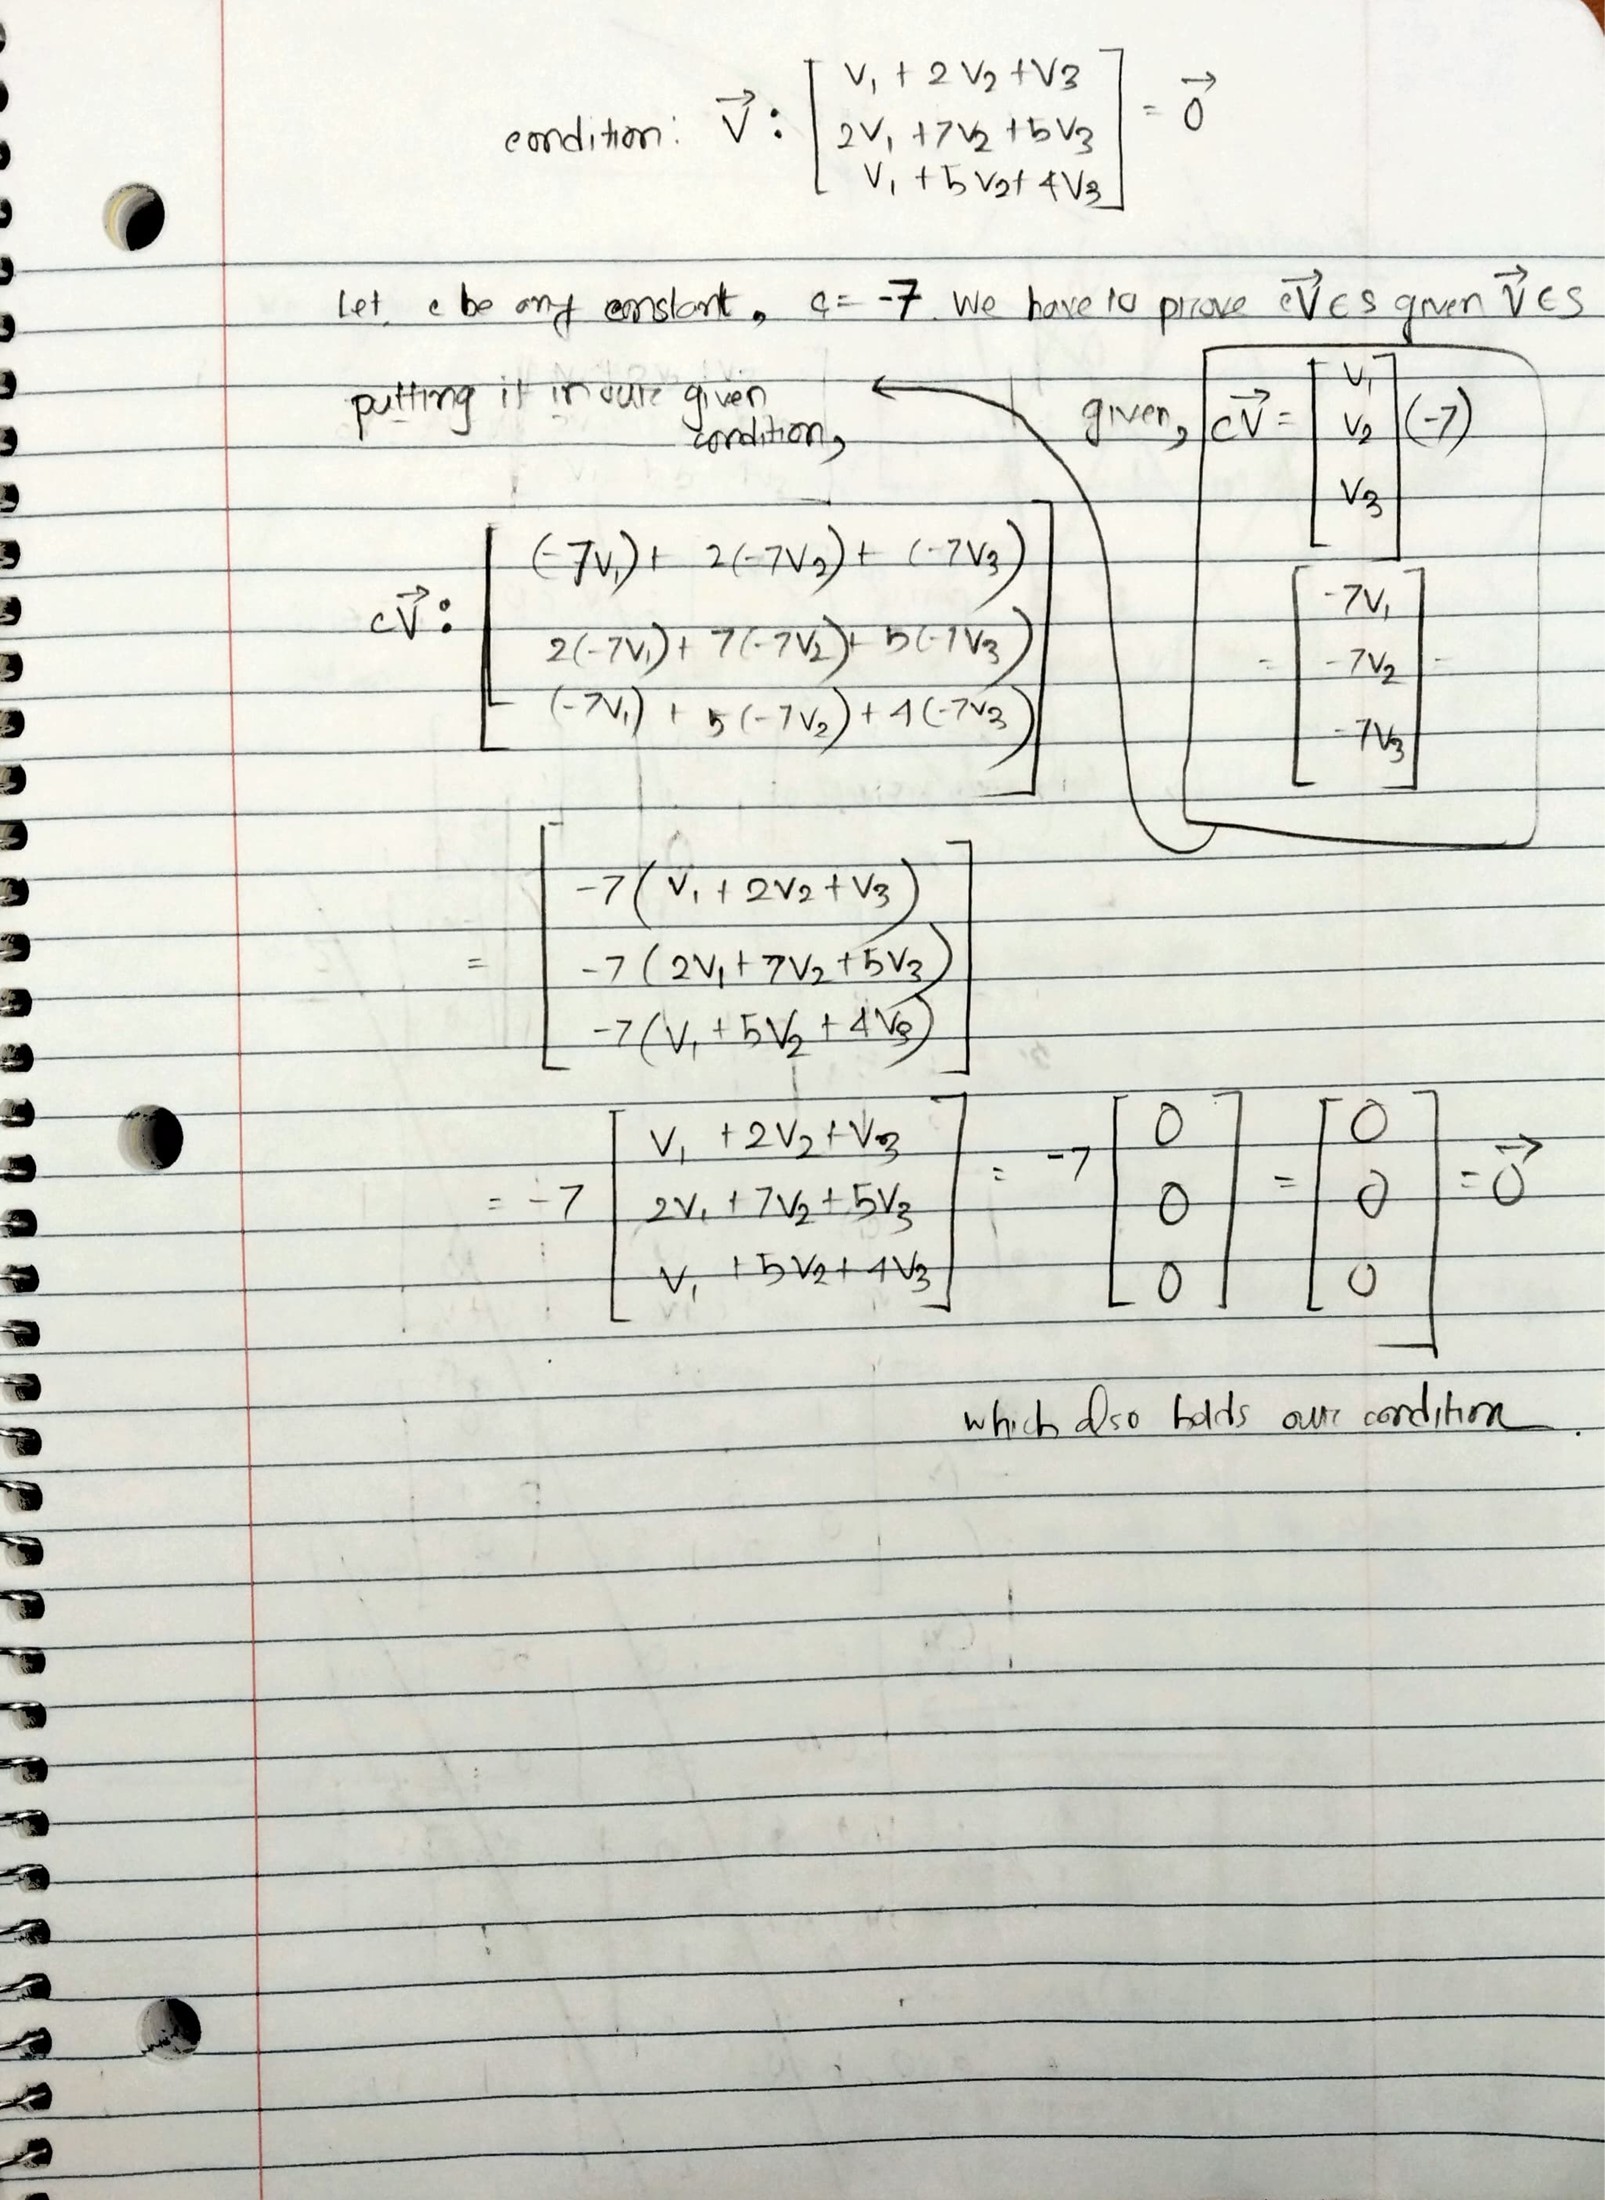 condition: V⃗ : [ V₁ + 2V₂ + V₃
2V₁ + 7V₂ + 5V₃
V₁ + 5V₂ + 4V₃ ] = 0⃗
Let, c be any constant, c = -7. We have to prove cV⃗ ∈ S given V⃗ ∈ S
putting it in our given
condition,
given, cV⃗ = [ V₁
V₂
V₃ ] (-7)
= [ -7V₁
-7V₂
-7V₃ ] =
cV⃗ : [ (-7V₁) + 2(-7V₂) + (-7V₃)
2(-7V₁) + 7(-7V₂) + 5(-7V₃)
(-7V₁) + 5(-7V₂) + 4(-7V₃) ]
= [ -7(V₁ + 2V₂ + V₃)
-7(2V₁ + 7V₂ + 5V₃)
-7(V₁ + 5V₂ + 4V₃) ]
= -7 [ V₁ + 2V₂ + V₃
2V₁ + 7V₂ + 5V₃
V₁ + 5V₂ + 4V₃ ] = -7 [ 0
0
0 ] = [ 0
0
0 ] = 0⃗
which also holds our condition.